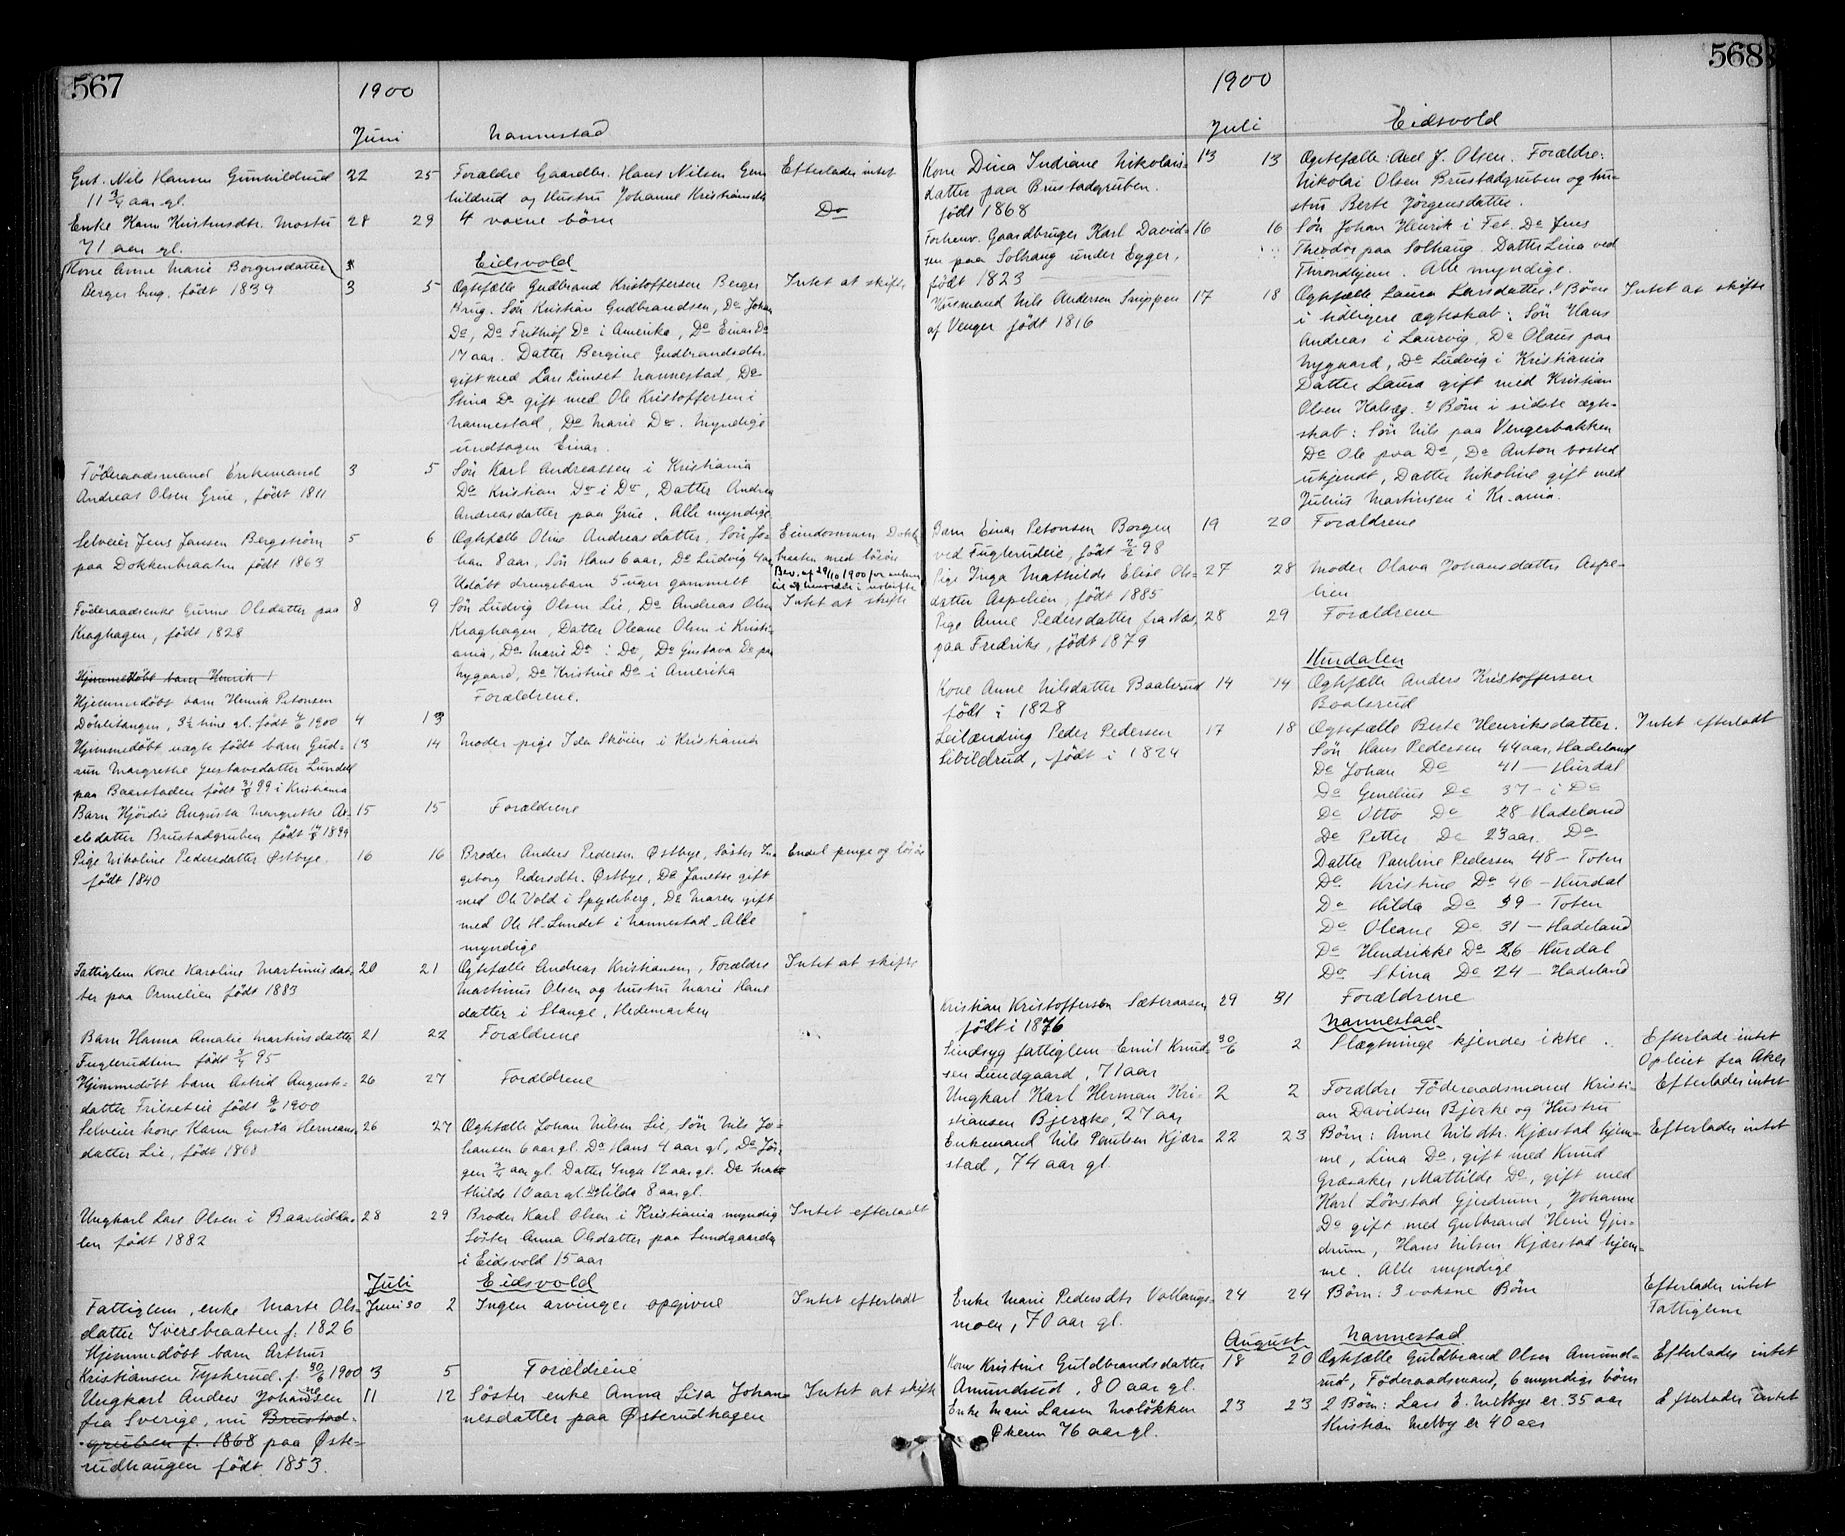 567
1900
Juni
Nannestad
Gut. Nils Hansen Gunhildrud 22 25 Forældre Gaardbr. Hans Nilsen Gun Efterlader intet
11 3/4 aar gl. hildrud og Hustru Johanne Kristiansdtr
Enke Karen 71 aar gl. 28 29 4 voxne børn Do
Eidsvold
Kone Anne Marie Borgersdatter
Berger brug. født 1839 3 5 Ægtefælle Gudbrand Kristoffersen Berger Intet at skifte
brug. Søn Kristian Gudbrandsen, Do Johan
Do, Do Frithiof Do i Amerika, Do Einar Do
17 aar. Datter Bergine Gudbrandsdtr.
gift med Lars Nannestad, Do
Stina Do gift med Ole Kristoffersen i
Nannestad, Do Marie Do. Myndige
undtagen Einar.
Føderaadsmand Enkemand 3 5 Søn Karl Andreassen i Kristiania
Andreas Olsen Grue, født 1811 Do Kristian Do i Do, Datter Andrea
Andreasdatter paa Grue. Alle myndige
Selveier Jens Jansen Bergstrøm 5 6 Ægtefælle Oline Andreasdatter, Søn Jo- Eiendommen Dokk
paa Dokkenbraaten født 1863 han 8 aar, Søn Hans 6 aar, Do Ludvig 4 aar braaten med løsøre
Udøbt drengebarn 5 uger gammelt Bev. af 29/10 1900 for enken
til at hensidde i uskifte
Føderaadsenke Gunne Olsdatter paa 8 9 Søn Ludvig Olsen Lie, Do Andreas Olsen Intet at skifte
Kraghagen, født 1828 Kraghagen, Datter Oleane Olsen i Kristi-
ania, Do Marie Do i Do, Do Gustava Do paa
Nygaard, Do Kristine Do i Amerika
Hjemmedøbt barn Henrik
Hjemmedøbt barn Henrik Petersen Forældrene.
3 1/2 time gl. født 4/6 1900 4 13
Hjemmedøbt uægte født barn Gud- 13 14 Moder pige Ida Skøien i Kristiania
run Margrethe Gustavsdatter Lundell
paa Baarstaden født 99 i Kristiania
Barn Hjørdis Augusta Margrethe Ax- 15 15 Forældrene
elsdatter Brustadgruben født 1899
Pige Nikoline Pedersdatter Østbye. 16 16 Broder Anders Pedersen Østbye, Søster In- Endel penge og løsøre
født 1840 geborg Pedersdtr. Østbye, Do Janette gift
med Ole Vold i Spydeberg, Do Maren gift
med Ole H. Lundet i Nannestad. Alle
myndige
Fattiglem Kone Karoline Martinusdat- 20 21 Ægtefælle Andreas Kristiansen, Forældre Intet at skifte
ter paa Ormelien født 1883 Martinus Olsen og Hustru Marie Hans
datter i Stange, Hedemarken
Barn Hanna Amalie Martinusdatter 21 22 Forældrene
Fuglerudlien født 95
Hjemmedøbt barn Astrid August- 26 27 Forældrene
datter Frilseteie født 9/6 1900
Selveier kone Karen Gusta Hermans- 26 27 Ægtefælle Johan Nilsen Lie, Søn Nils Jo-
datter Lie, født 1868 hansen 6 aar gl. Do Hans 4 aar gl, Do Jør-
gen aar gl. Datter Inga 12 aar gl. Do Mat-
hilde 10 aar gl. Do Hilda 8 aar gl.
Ungkarl Lars Olsen i Baarlidda- 28 29 Broder Karl Olsen i Kristiania myndig Intet efterladt
len født 1882 Søster Anna Olsdatter paa Sundgaarden
i Eidsvold 15 aar
Juli Eidsvold
Fattiglem, enke Marte Ols- Juni 30 2 Ingen arvinger opgivne Intet efterladt
datter Iversbraaten f. 1826
Hjemmedøbt barn Arthur
Kristiansen Tyskerud f. 30/6 1900 3 5 Forældrene
Ungkarl Anders Johannesen 11 12 Søster enke Anna Lisa Johan- Intet at skifte
fra Sverige, nu Brustad- nesdatter paa Østerudhagen
gruben f. 1868 paa Øste-
rudhaugen født 1853.
568
1900
Juli
Eidsvold
Kone Dina Indiane Nikolais- 13 13 Ægtefælle: Axel J. Olsen. Forældre:
datter paa Brustadgruben. Nikolai Olsen Brustadgruben og hu-
født 1868 stru Berte Jørgensdatter.
Forhenv. Gaardbruger Karl David- 16 16 Søn Johan Henrik i Fet. Do Jens
sen paa Solhaug under Egger, Theodor paa Solhaug. Datter Lina ved
født 1823 Throndhjem. Alle myndige.
Husmand Nils Andersen Snippen 17 18 Ægtefælle Laura Larsdatter. 1) Børn Intet at skifte
af Venger født 1816 i tidligere ægteskab: Søn Hans
Andreas i Laurvig, Do Olaus paa
Nygaard, Do Ludvig i Kristiania
Datter Laura gift med Kristian
Olsen Habæg. 2) Børn i sidste ægte-
skab: Søn Nils paa Vengerbakken
Do Ole paa Do, Do Anton bosted
ukjendt, Datter Nikoline gift med
Julius Martinsen i Kr.ania.
Barn Einar Petersen Borgen 19 20 Forældrene
ved Fuglerudeie, født 98
Pige Inga Mathilde Elise Ols- 27 28 Moder Olava Johansdatter Aspe-
datter Aspelien, født 1885 lien
Pige Anne Pedersdatter fra Næs, 28 29 Forældrene
paa Fredriks, født 1879
Hurdalen
Kone Anne Nilsdatter Baalsrud 14 14 Ægtefælle Anders Kristoffersen
født i 1828 Baalsrud
Leilænding Peder Pedersen 17 18 Ægtefælle Berte Henriksdatter. Intet efterladt
Sibildrud, født i 1824 Søn Hans Pedersen 44 aar, Hadeland
Do Johan Do 41 — Hurdal
Do Genelius Do 37 - i Do
Do Otto Do 28 Hadeland
Do Petter Do 23 aar. Do
Datter Pauline Pedersen 48 — Toten
Do Kristine Do 46 — Hurdal
Do Hilda Do 39 — Toten
Do Oleane Do 31 — Hadeland
Do Hendrikke Do 26 Hurdal
Do Stina Do 24 — Hadeland
Kristian Kristoffersen Sæteraasen 29 31 Forældrene
født i 1876
Nannestad
Sindsyg fattiglem Emil Knud- 30/6 2 Slægtninge kjendes ikke. Efterlader intet
sen Lundgaard, 71 aar Opleiet fra Aker
Ungkarl Karl Herman Kri- 2 2 Forældre Føderaadsmand Kristi- Efterlader intet
stiansen Bjerke, 27 aar an Davidsen Bjerke og Hustru
Enkemand Nils Paulsen Kjær- 22 23 Børn: Anne Nilsdtr. Kjærstad hjem- Efterlader intet
stad, 74 aar gl. me, Lina Do, gift med Knud
Græsaker, Mathilde Do, gift med
Karl Løvstad Gjerdrum, Johanne
Do gift med Gulbrand Gjer-
drum, Hans Nilsen Kjærstad hjem-
me. Alle myndige
Enke Marie Pedersdtr. Vollaugs- 24 24 Børn: 3 voksne Børn Efterlader intet
moen, 70 aar gl. Fattiglem
August Nannestad
Kone Kristine Guldbrandsdatter 18 20 Ægtefælle Guldbrand Olsen Amund- Efterlader intet
Amundrud, 80 aar gl. rud, Føderaadsmand, 6 myndige børn
Enke Marie Larsen Moløkken 23 23 2 Børn: Lars E. Melbye er 35 aar Efterlader intet
Økern 76 aar gl. Kristian Melby er 40 aar